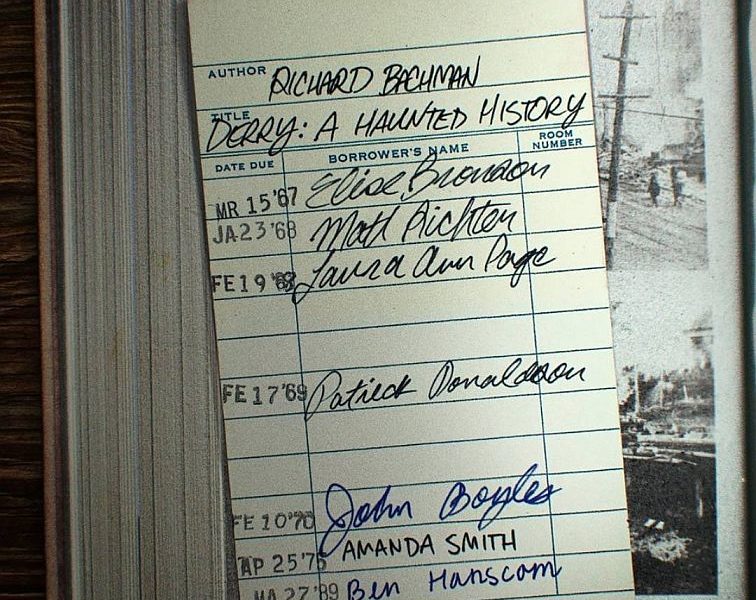 AUTHOR RICHARD BACHMAN
TITLE DERRY: A HAUNTED HISTORY
DATE DUE BORROWER'S NAME ROOM NUMBER
MR 15 '67 Elise Bronson
JA 23 '68 Matt Richten
FE 19 '68 Laura Ann Page
FE 17 '69 Patrick Donaldson
FE 10 '70 John Boyles
AP 25 '75 AMANDA SMITH
MA 27 '89 Ben Hanscom